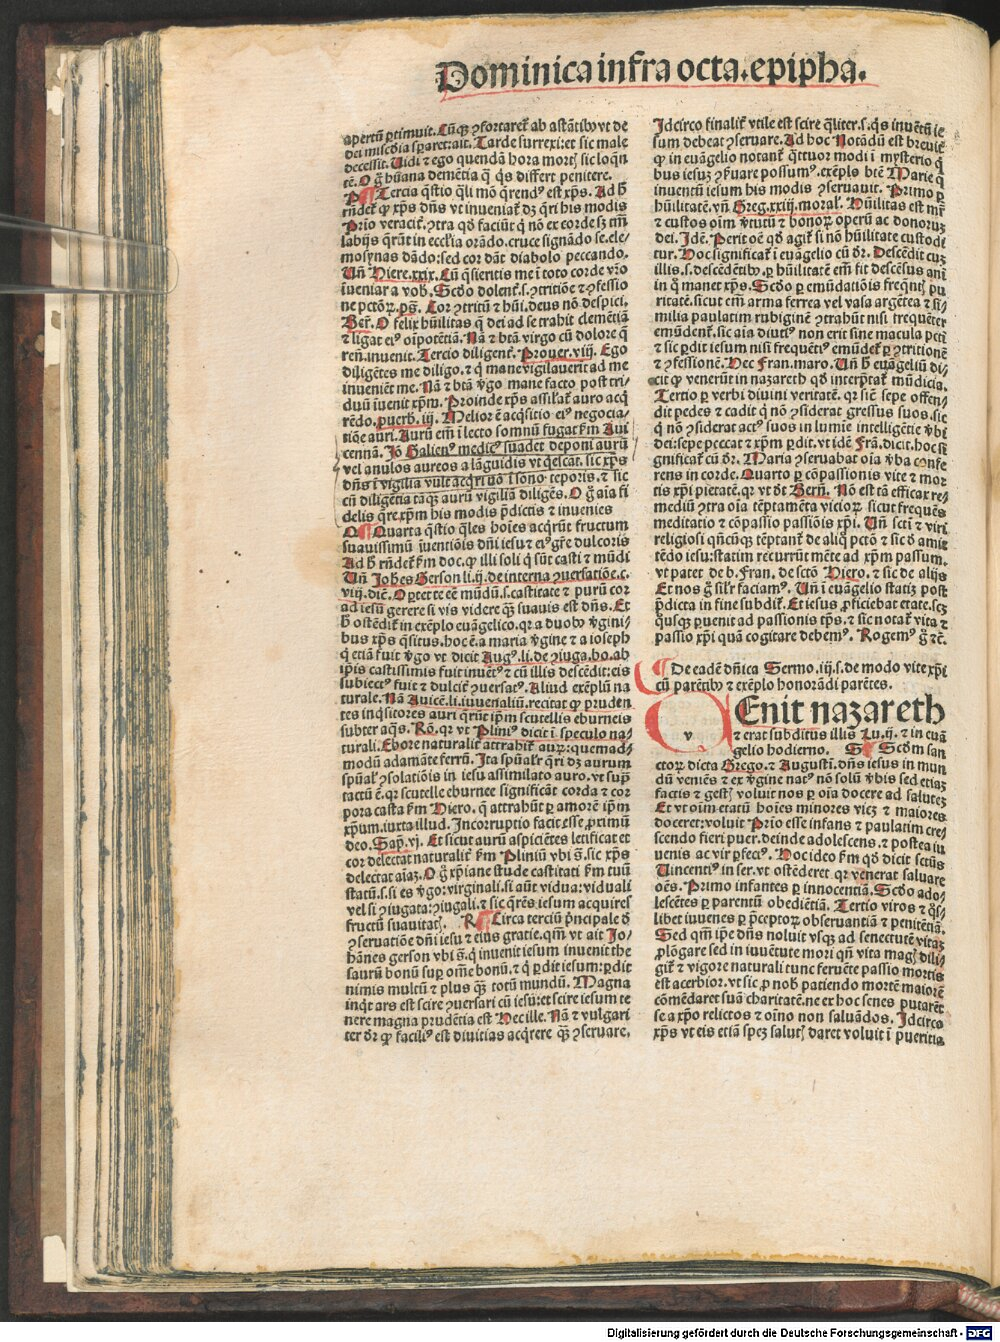 Dominica infra octa.epipha.
apertū ꝑtimuit. Cūqꝫ ↄfortaret᷑ ab astātibꝰ vt de
dei miscdia speraret: ait. Tarde surrexi: et sic male
decessit. Uidi ⁊ ego quendā hora mort sic loqn
tē. O g̊ hūana demētia q̄ qͥs differt penitere.
Tercia qͣstio qͥli mō qͥrendꝰ est xp̄s. Ad h̄
rn̄det᷑ ꝙ xp̄s dn̄s vt inueniat᷑ dꝫ qͥri his modis
Prīo veracit᷑. ↄtra qd̓ faciūt qͥ nō ex corde sꝫ tm̄
labijs qͥrūt in eccl'ia orādo. cruce signādo se. ele
mosynas dādo: sed cor dāt diabolo peccando.
Un̄ Hiere.xxix. Cū qͥsieritis me ī toto corde vr̄o
īueniar a vob̄. Scd̓o dolent᷑. s. ↄtritiōe ⁊ ↄfessio
ne pctōꝝ. ps̄. Cor ↄtritū ⁊ hūi. deus nō despici.
Ber̄. O felix hūilitas q̄ dei ad se trahit clemētiā
⁊ ligat eiꝰ oīpotētiā. Nā ⁊ btā virgo cū dolore q̄
rēn. inuenit. Tercio diligent᷑. Prouer.viij. Ego
diligētes me diligo. ⁊ qͥ mane vigilauerit ad me
inueniēt me. Nā ⁊ btā ꝟgo mane facto post tri
duū īuenit xp̄m. Proinde xp̄s assilat᷑ auro acq̄
rēdo. ꝓuerb. iij. Melior ē acqͥsitio eiꝰ negocia-
tiōe auri. Aurū em̄ ī lecto somnū fugat fm̄ Aui
cennā. Iō Galienꝰ medicꝰ suadet deponi aurū
vel anulos aureos a lāguidis vt qͥescat. sic xp̄s
dn̄s ī vigilia vult acqͥri nō ī sono teporis. ⁊ sic
cū diligētia tāqͣꝫ aurū vigiliā diligēs. O g̊ aīa fi
delis qͥre xp̄m his modis p̄dictis ⁊ inuenies
Quarta qͥstio qͥles hoīes acqͥrūt fructum
suauissimū īuentiōis dn̄i iesu ⁊ eiꝰ gr̄e dulcoris
Ad h̄ rn̄det᷑ fm̄ doc. ꝙ illi soli qͥ sūt casti ⁊ mūdi
Un̄ Joh̄es Gerson li.ij. de interna ↄuersatiōe.c.
viij. dic̄. Oꝑtet te eē mūdū. s. castitate ⁊ purū cor
ad iesū gerere si vis videre qͣꝫ suauis est dn̄s. Et
h̄ ostēdit᷑ in exēplo euāgelico. qꝛ a duobꝰ ꝟgini-
bus xp̄s qͥsitus. hoc ē. a maria ꝟgine ⁊ a ioseph
qͥ etiā fuit ꝟgo vt dicit Augꝰ. li. de ↄiuga. bo. ab
ip̄is castissimis fuit inuetꝰ ⁊ cū illis descēdit: eis
subiectꝰ fuit ⁊ dulcit᷑ ↄuersatꝰ. Aliud exēplū na
turale. Nā Auicē. li. iuuenaliū. recitat ꝙ pruden
tes inqͥsitores auri qͥrūt ip̄m scutellis eburneis
subter aqͣs. Rō. qꝛ vt Pliniꝰ dicit ī speculo na-
turali. Ebore naturalit᷑ attrahit᷑ auꝝ: quemad-
modū adamāte ferrū. Ita sp̄ual'r qͥri dꝫ aurum
sp̄ual' ↄsolatiōis in iesu assimilato auro. vt sup
tactū ē. qꝛ scutelle eburnee significāt corda ⁊ cor
pora casta fm̄ Hiero. q̄ attrahūt ꝑ amorē ip̄m
xp̄um. iuxta illud. Incorruptio facit esse ꝓximū
deo. Sap̄. vj. Et sicut aurū aspiciētes letificat et
cor delectat naturalit᷑ fm̄ Pliniū vbi s̄. sic xp̄s
delectat aīaꝫ. O g̊ xp̄iane stude castitati fm̄ tuū
statū. s. si es ꝟgo: virginali. si aūt vidua: viduali
vel si ↄiugata: ↄiugali. ⁊ sic qͥrēs iesum acquires
fructū suauitat. Circa terciū p̄ncipale d̓
ↄseruatiōe dn̄i iesu ⁊ eius gratie. qm̄ vt ait Jo-
hānes gerson vbi s̄. qͥ inuenit iesum inuenit the
saurū bonū sup om̄e bonū. ⁊ qͥ ꝑdit iesum: ꝑdit
nimis multū ⁊ plus qͣꝫ totū mundū. Magna
inqͥt ars est scire ↄuersari cū iesu: et scire iesum te
nere magna prudētia est Hec ille. Nā ⁊ vulgari
ter dr̄ ꝙ faciliꝰ est diuitias acqͥrere qͣꝫ ↄseruare.
Idcirco finalit᷑ vtile est scire qͣliter. s. qͥs inuētū ie
sum debeat ↄseruare. Ad hoc Notādū est breuit᷑
ꝙ in euāgelio notant᷑ qͣttuor modi ī mysterio qͥ
bus iesuꝫ ↄẜuare possumꝰ. exēplo bt̄e Marie q̄
inuentū iesum his modis ↄseruauit. Primo ꝑ
hūilitatē. vn̄ Greg. xxiij. moral'. Hūilitas est mr̄
⁊ custos oīm ꝟtutū ⁊ bonoꝝ operū ac donoruꝫ
dei. Idē. Perit oē qd̓ agit᷑ si nō hūilitate custodi
tur. Hoc significat᷑ ī euāgelio cū dr̄. Descēdit cuꝫ
illis. s. descēdētibꝰ. ꝑ hūilitatē em̄ fit descēsus aīe
in qͣ manet xp̄s. Scd̓o ꝑ emūdatiōis frequēt pu
ritatē. sicut em̄ arma ferrea vel vasa argētea ⁊ si-
milia paulatim rubiginē ↄtrahūt nisi frequēter
emūdent᷑. sic aīa diutiꝰ non erit sine macula pct̄i
⁊ sic ꝑdit iesum nisi frequētiꝰ emūdet᷑ ꝑ ↄtritionē
⁊ ↄfessionē. Hec Fran. maro. Un̄ h̄ euāgeliū di-
cit ꝙ venerūt in nazaret qd̓ interp̄tat᷑ mūdicia.
Tertio ꝑ verbi diuini veritatē. qꝛ sic̄ sepe offen-
dit pedes ⁊ cadit qͥ nō ↄsiderat gressus suos. sic
qͥ nō ↄsiderat actꝰ suos in lumīe intelligētie ꝟbi
dei: sepe peccat ⁊ xp̄m ꝑdit. vt idē Frā. dicit. hoc si
gnificat᷑ cū dr̄. Maria ↄseruabat oīa ꝟba confe
rens in corde. Quarto ꝑ cōpassionis vite ⁊ mor
tis xp̄i pietatē. qꝛ vt dt̄ Bern̄. Nō est tā efficax re
mediū ↄtra oīa tēptamēta vicioꝝ sicut frequēs
meditatio ⁊ cōpassio passiōis xp̄i. Un̄ sct̄i ⁊ viri
religiosi qn̄cūqꝫ tēptant᷑ de aliqͦ pctō ⁊ sic d̓ amit
tēdo iesu: statim recurrūt mēte ad xp̄m passum.
vt patet de b. Fran. de sctō Hiero. ⁊ sic de alijs
Et nos g̊ sil'r faciamꝰ. Un̄ ī euāgelio statiꝫ post
p̄dicta in fine subdit᷑. Et iesus ꝓficiebat etate. scꝫ
qͣusqꝫ ꝑuenit ad passionis tp̄s. ⁊ sic notat᷑ vita ⁊
passio xp̄i quā cogitare debemꝰ. Rogemꝰ g̊ ⁊c̄.
De eadē dn̄ica Sermo. iij. s. de modo vite xp̄i
cū parētibꝰ ⁊ exēplo honorādi parētes.
v Enit nazareth
⁊ erat subditus illis Lu.ij. ⁊ in euā
gelio hodierno. Scd̓m san
ctoꝝ dicta Grego. ⁊ Augusti. dn̄s iesus in mun
dū veniēs ⁊ ex ꝟgine natꝰ nō solū ꝟbis sed etiaꝫ
factis ⁊ gest voluit nos ꝑ oīa docere ad saluteꝫ
Et vt oīm etatū hoīes minores vicꝫ ⁊ maiores
doceret: voluit Prīo esse infans ⁊ paulatim cre
scendo fieri puer. deinde adolescens. ⁊ postea iu
uenis ac vir ꝑfectꝰ. Hoc ideo fm̄ qd̓ dicit sctūs
Uincentiꝰ in ser. vt ostēderet qꝛ venerat saluare
oēs. Primo infantes ꝑ innocentiā. Scd̓o ado-
lescētes ꝑ parentū obediētiā. Tertio viros ⁊ qͣs-
libet iuuenes ꝑ p̄ceptoꝝ obseruantiā ⁊ penitētiā.
Sed qm̄ ip̄e dn̄s noluit vsqꝫ ad senectutē vitaꝫ
ꝓlōgare sed in iuuētute mori qn̄ vita mag dili-
git᷑ ⁊ vigore naturali tunc feruēte passio mortis
est acerbior. vt sic ꝓ nob̄ patiendo mortē maiorē
cōmēdaret suā charitatē. ne ex hoc senes putarēt
se a xp̄o relictos ⁊ oīno non saluādos. Idcirco
xp̄s vt eis etiā speꝫ salut daret voluit ī pueritia
Digitalisierung gefördert durch die Deutsche Forschungsgemeinschaft - DFG